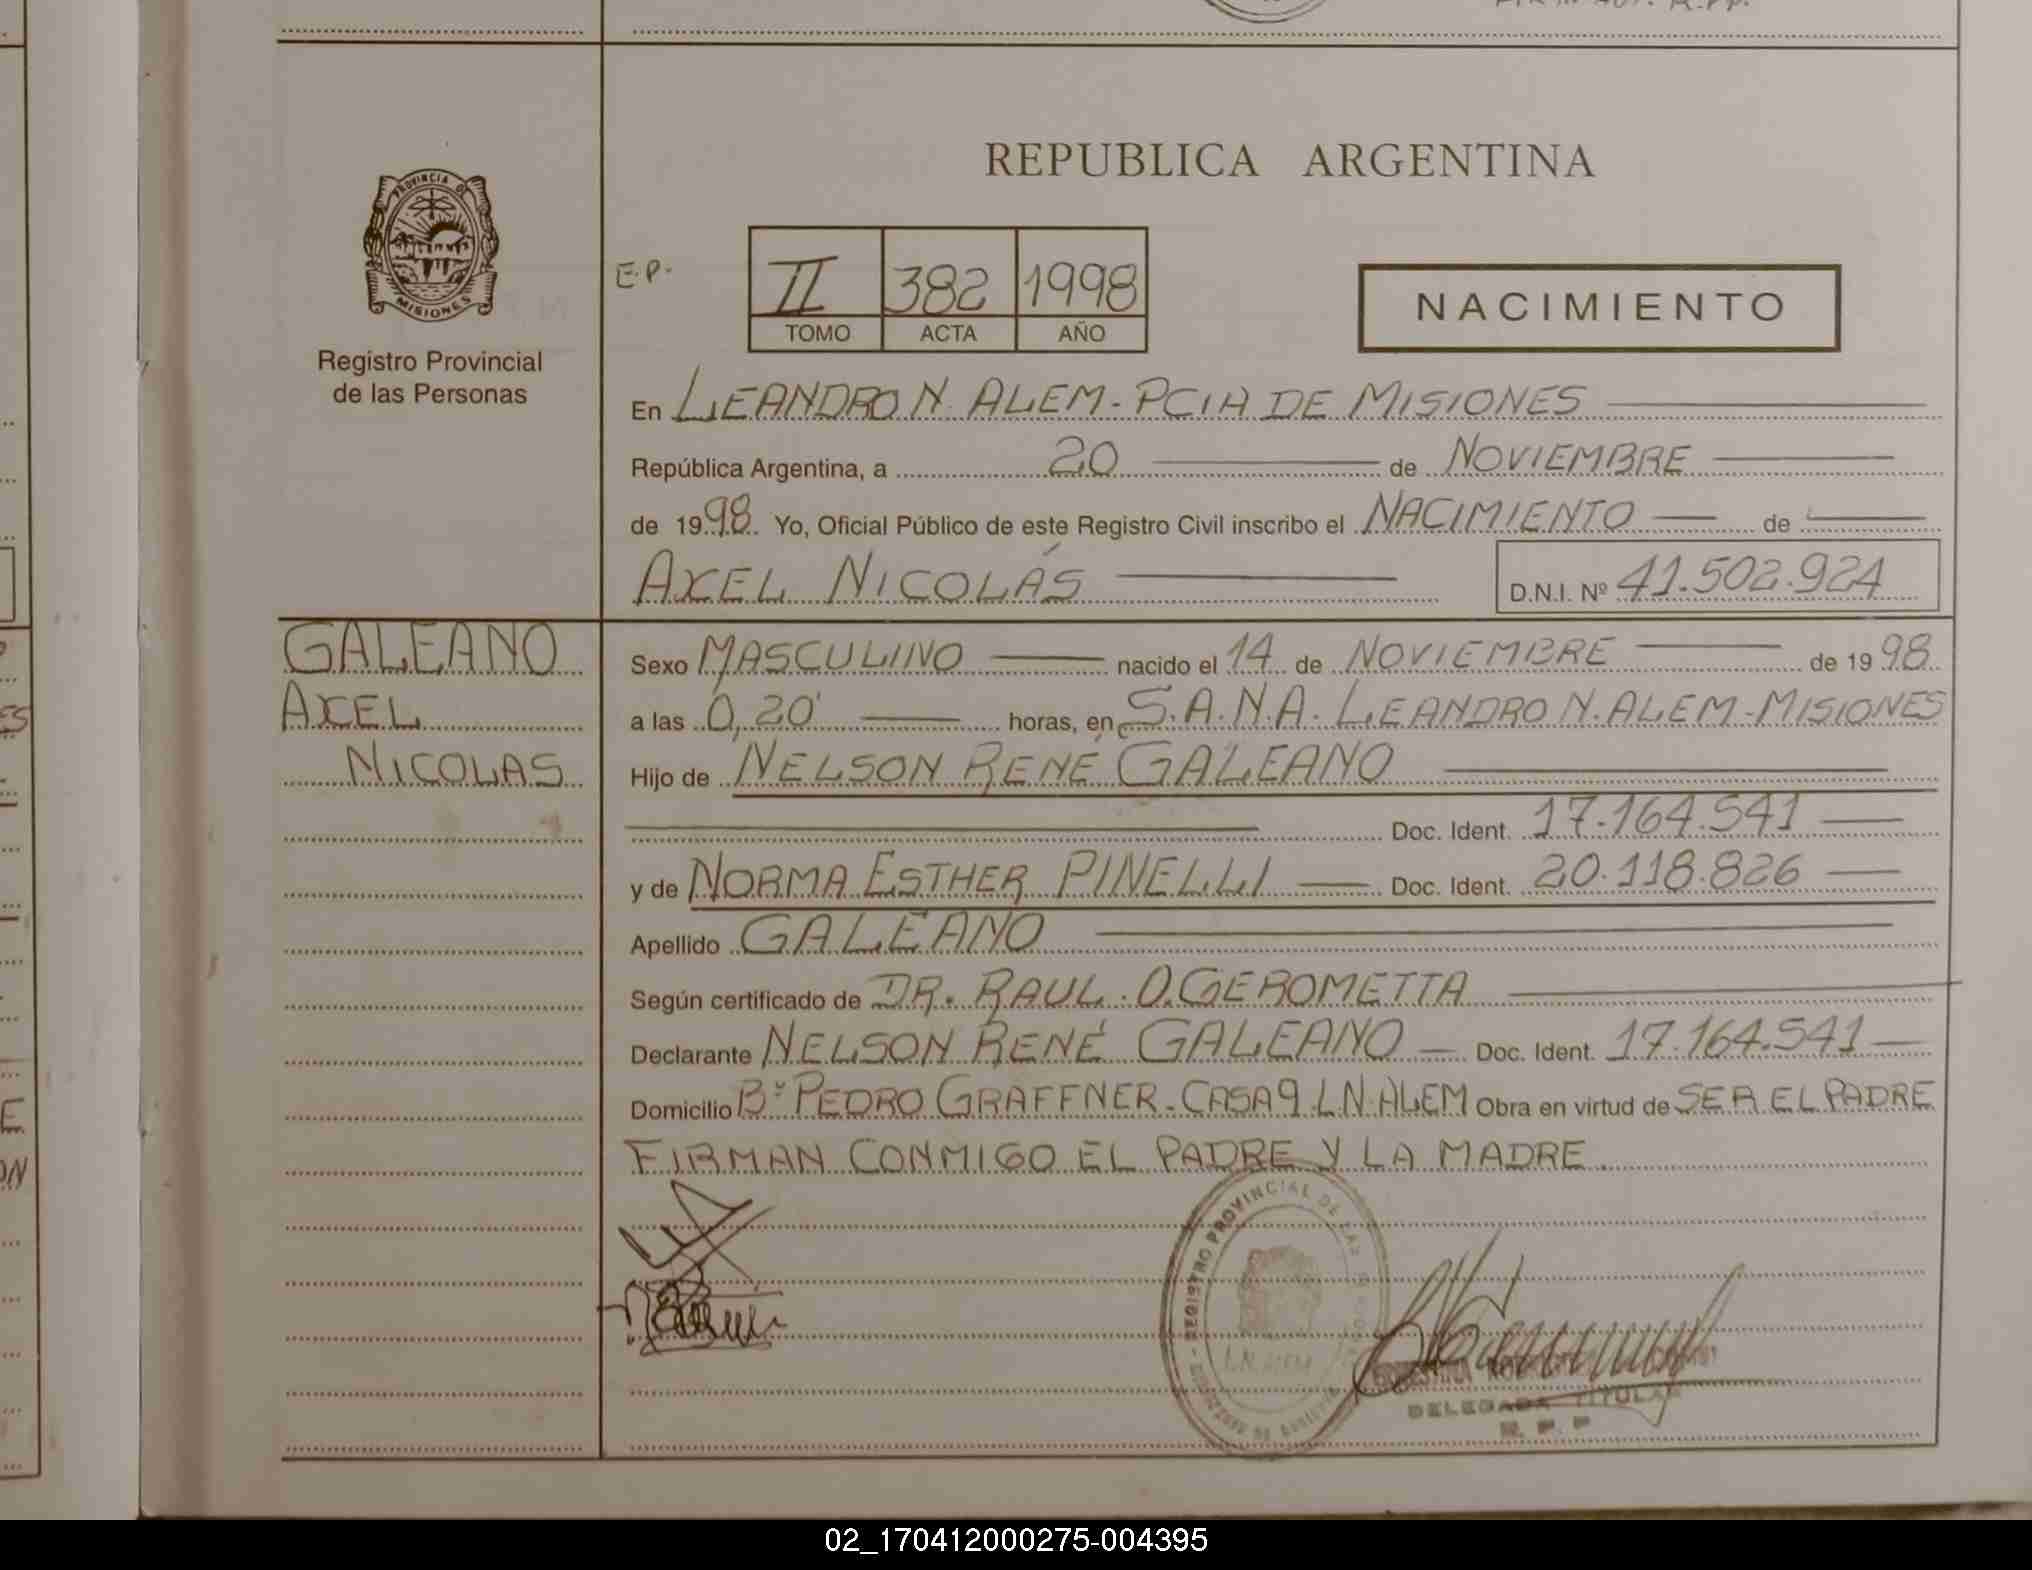 REPUBLICA ARGENTINA
PROVINCIA DE
MISIONES
Registro Provincial
de las Personas
E.P.
II 382 1998
TOMO ACTA AÑO
NACIMIENTO
En LEANDRO N. ALEM - PCIA DE MISIONES
República Argentina, a 20 de NOVIEMBRE
de 1998. Yo, Oficial Público de este Registro Civil inscribo el NACIMIENTO de
AXEL NICOLÁS D.N.I. Nº 41.502.924
GALEANO
AXEL
NICOLAS
Sexo MASCULINO nacido el 14 de NOVIEMBRE de 1998
a las 0,20' horas, en S.A.N.A. LEANDRO N. ALEM - MISIONES
Hijo de NELSON RENÉ GALEANO
Doc. Ident. 17.164.541
y de NORMA ESTHER PINELLI Doc. Ident. 20.118.826
Apellido GALEANO
Según certificado de DR. RAUL O. GEROMETTA
Declarante NELSON RENÉ GALEANO Doc. Ident. 17.164.541
Domicilio Bº PEDRO GRAFFNER - CASA 9 L.N. ALEM Obra en virtud de SER EL PADRE
FIRMAN CONMIGO EL PADRE Y LA MADRE.
REGISTRO PROVINCIAL DE LAS
L.N. ALEM
DELEGADA TITULAR
R. P. P
02_170412000275-004395